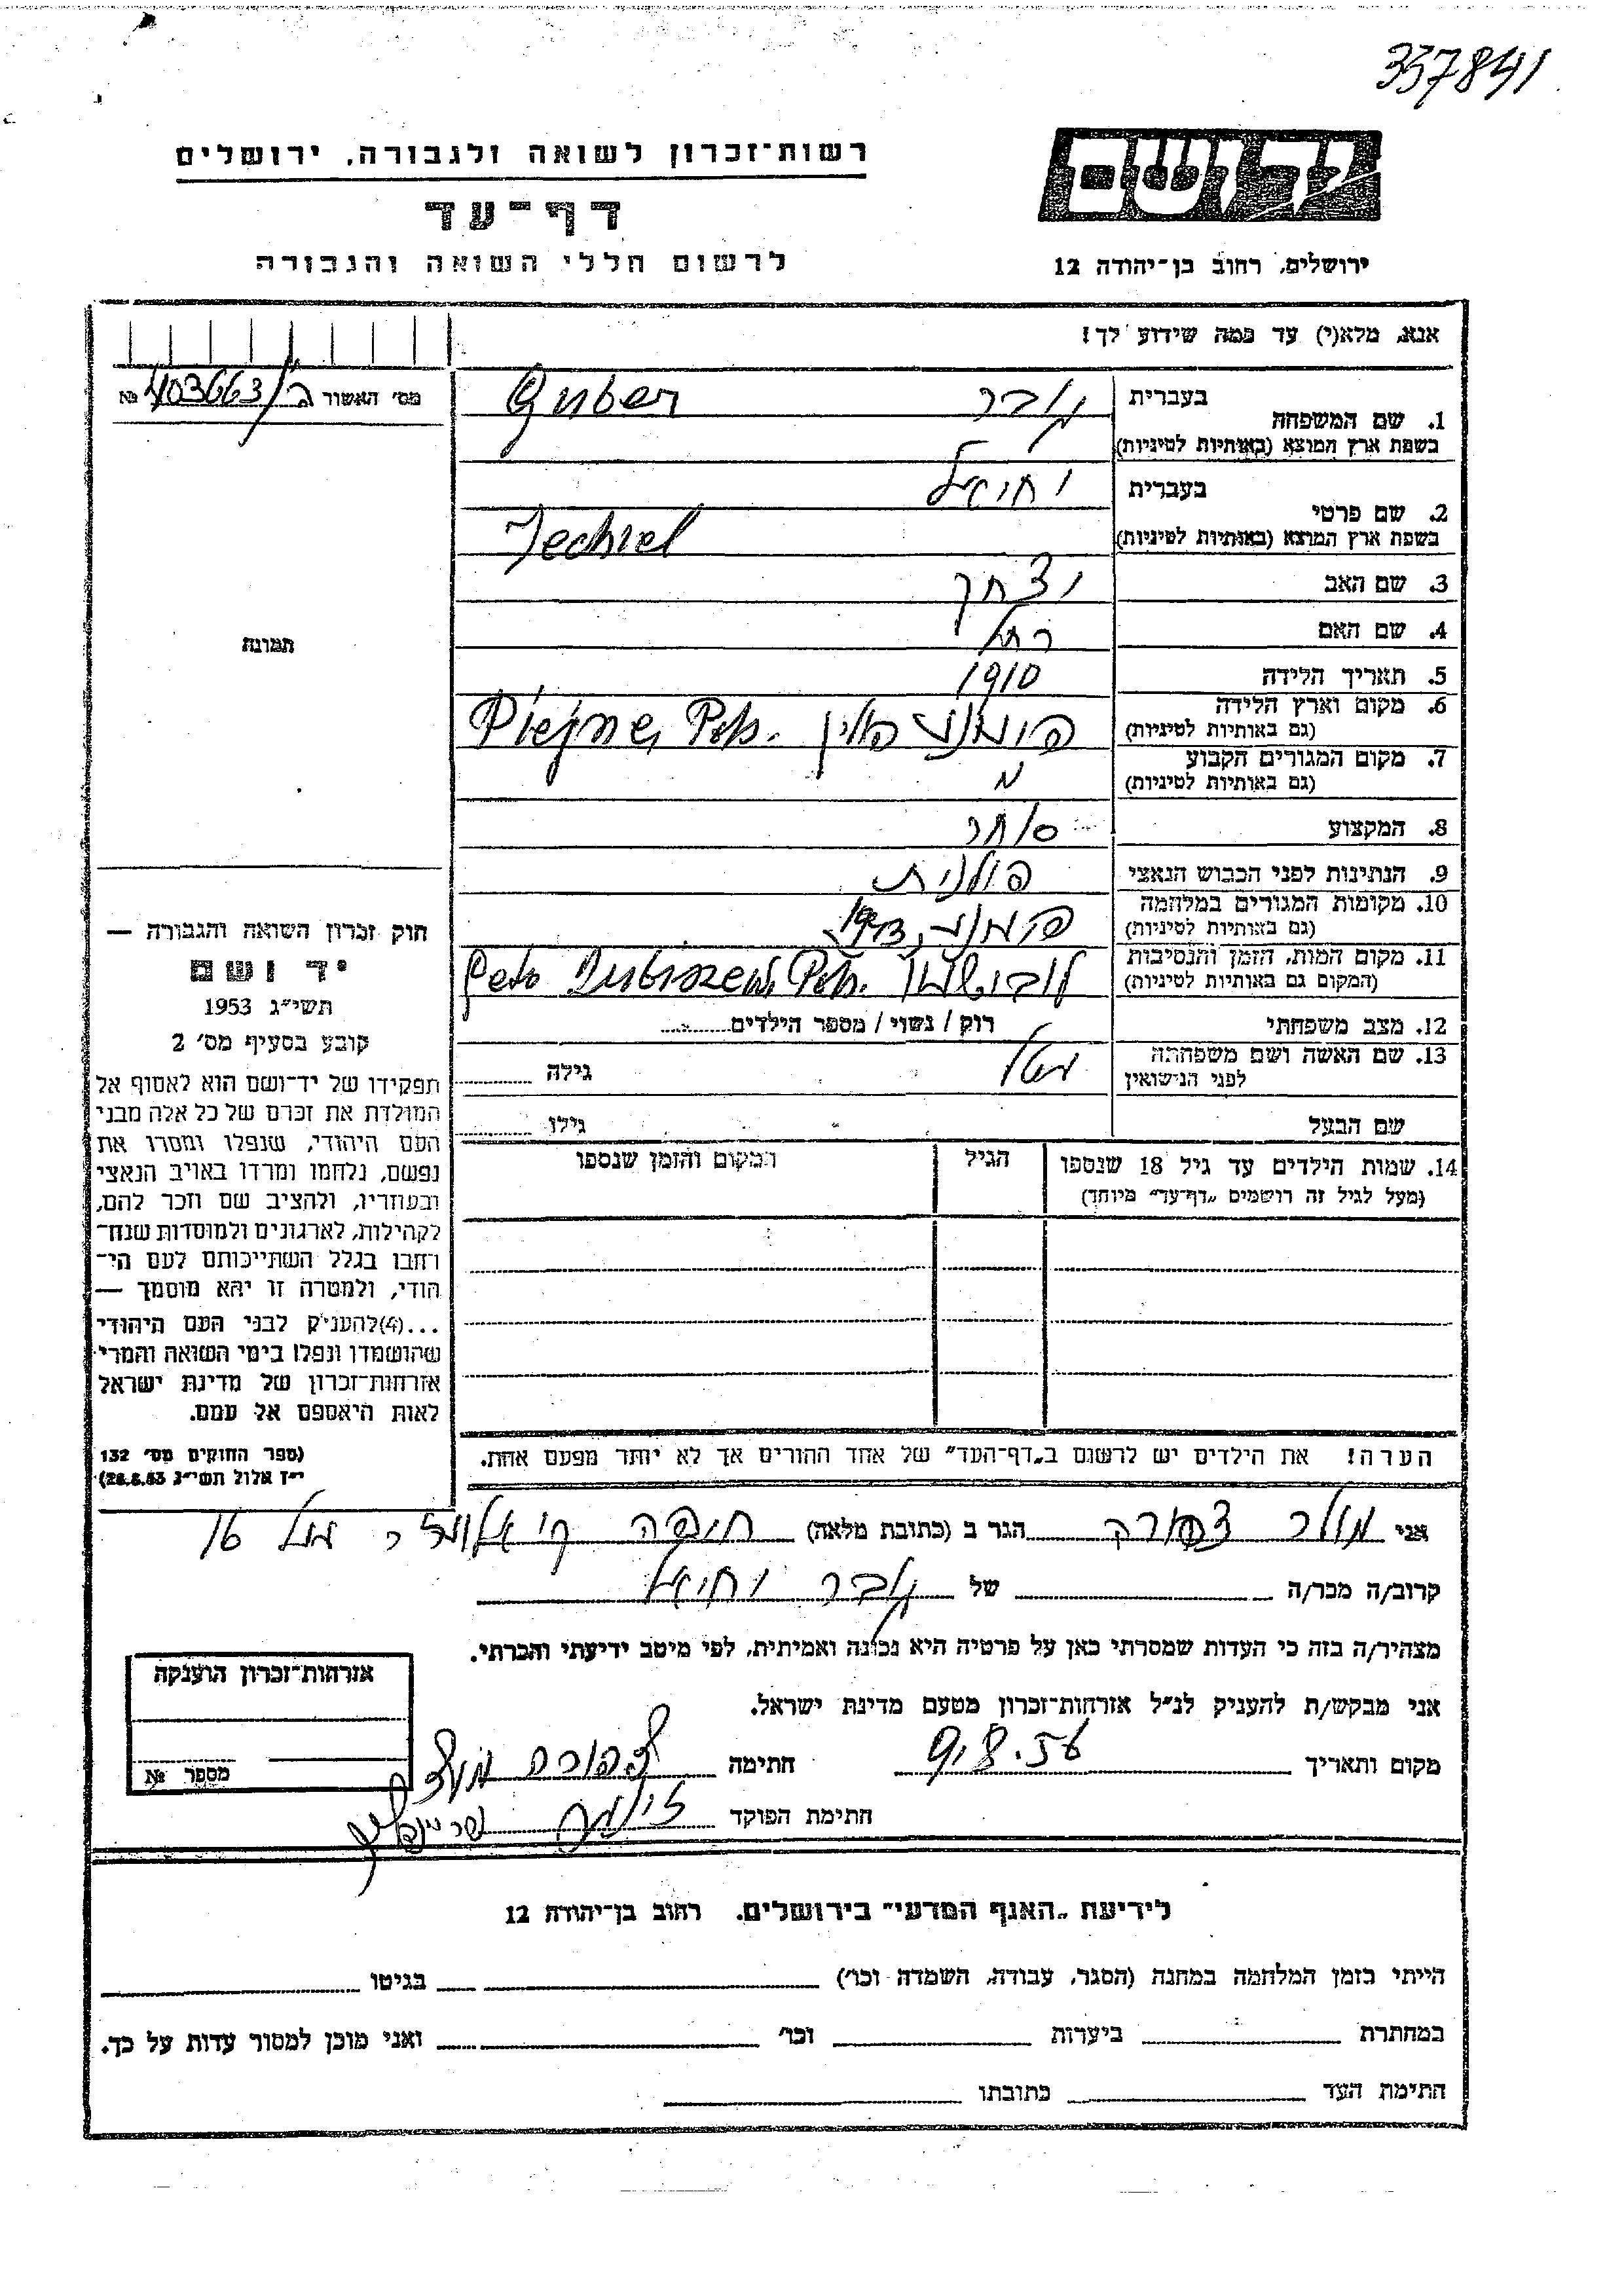 357841
רשות־זכרון לשואה ולגבורה, ירושלים
דף־עד
לרשום חללי השואה והגבורה
יד ושם
ירושלים, רחוב בן־יהודה 12
אנא, מלא(י) עד כמה שידוע לך!
מס׳ האשור 403663/ב №
תמונה
חוק זכרון השואה והגבורה —
יד ושם
תשי״ג 1953
קובע בסעיף מס׳ 2
תפקידו של יד־ושם הוא לאסוף אל
המולדת את זכרם של כל אלה מבני
העם היהודי, שנפלו ומסרו את
נפשם, נלחמו ומרדו באויב הנאצי
ובעוזריו, ולהציב שם וזכר להם,
לקהילות, לארגונים ולמוסדות שנח־
רחבו בגלל השתייכותם לעם הי־
הודי, ולמטרה זו יהא מוסמך —
...(4)להעניק לבני העם היהודי
שהושמדו ונפלו בימי השואה והמרי
אזרחות־זכרון של מדינת ישראל
לאות היאספם אל עמם.
(ספר החוקים מס׳ 132
י״ז אלול תשי״ג 28.8.53)
1. שם המשפחה בעברית גובר Guber
בשפת ארץ המוצא (באותיות לטיניות)
2. שם פרטי בעברית יחיאל
בשפת ארץ המוצא (באותיות לטיניות) Jechiel
3. שם האב יצחק
4. שם האם רחל
5. תאריך הלידה 1910
6. מקום וארץ הלידה
(גם באותיות לטיניות) פולין Pol.
7. מקום המגורים הקבוע
(גם באותיות לטיניות)
8. המקצוע סוחר
9. הנתינות לפני הכבוש הנאצי פולנית
10. מקומות המגורים במלחמה
(גם באותיות לטיניות)
11. מקום המות, הזמן והנסיבות
(המקום גם באותיות לטיניות) Pol.
12. מצב משפחתי רוק / נשוי / מספר הילדים
13. שם האשה ושם משפחתה
לפני הנישואין גילה
שם הבעל גילו
14. שמות הילדים עד גיל 18 שנספו הגיל המקום והזמן שנספו
(מעל לגיל זה רושמים „דף־עד״ מיוחד)
הערה! את הילדים יש לרשום ב„דף־העד״ של אחד ההורים אך לא יותר מפעם אחת.
אני הגר ב (כתובת מלאה) חיפה 16
קרוב/ה מכר/ה של גובר יחיאל
מצהיר/ה בזה כי העדות שמסרתי כאן על פרטיה היא נכונה ואמיתית, לפי מיטב ידיעתי והכרתי.
אני מבקש/ת להעניק לנ״ל אזרחות־זכרון מטעם מדינת ישראל.
מקום ותאריך 9.8.56 חתימה
חתימת הפוקד
אזרחות־זכרון הוענקה
מספר №
לידיעת „האגף המדעי״ בירושלים, רחוב בן־יהודה 12
הייתי בזמן המלחמה במחנה (הסגר, עבודה, השמדה וכו׳) בגיטו
במחתרת ביערות וכו׳ ואני מוכן למסור עדות על כך.
חתימת העד כתובתו